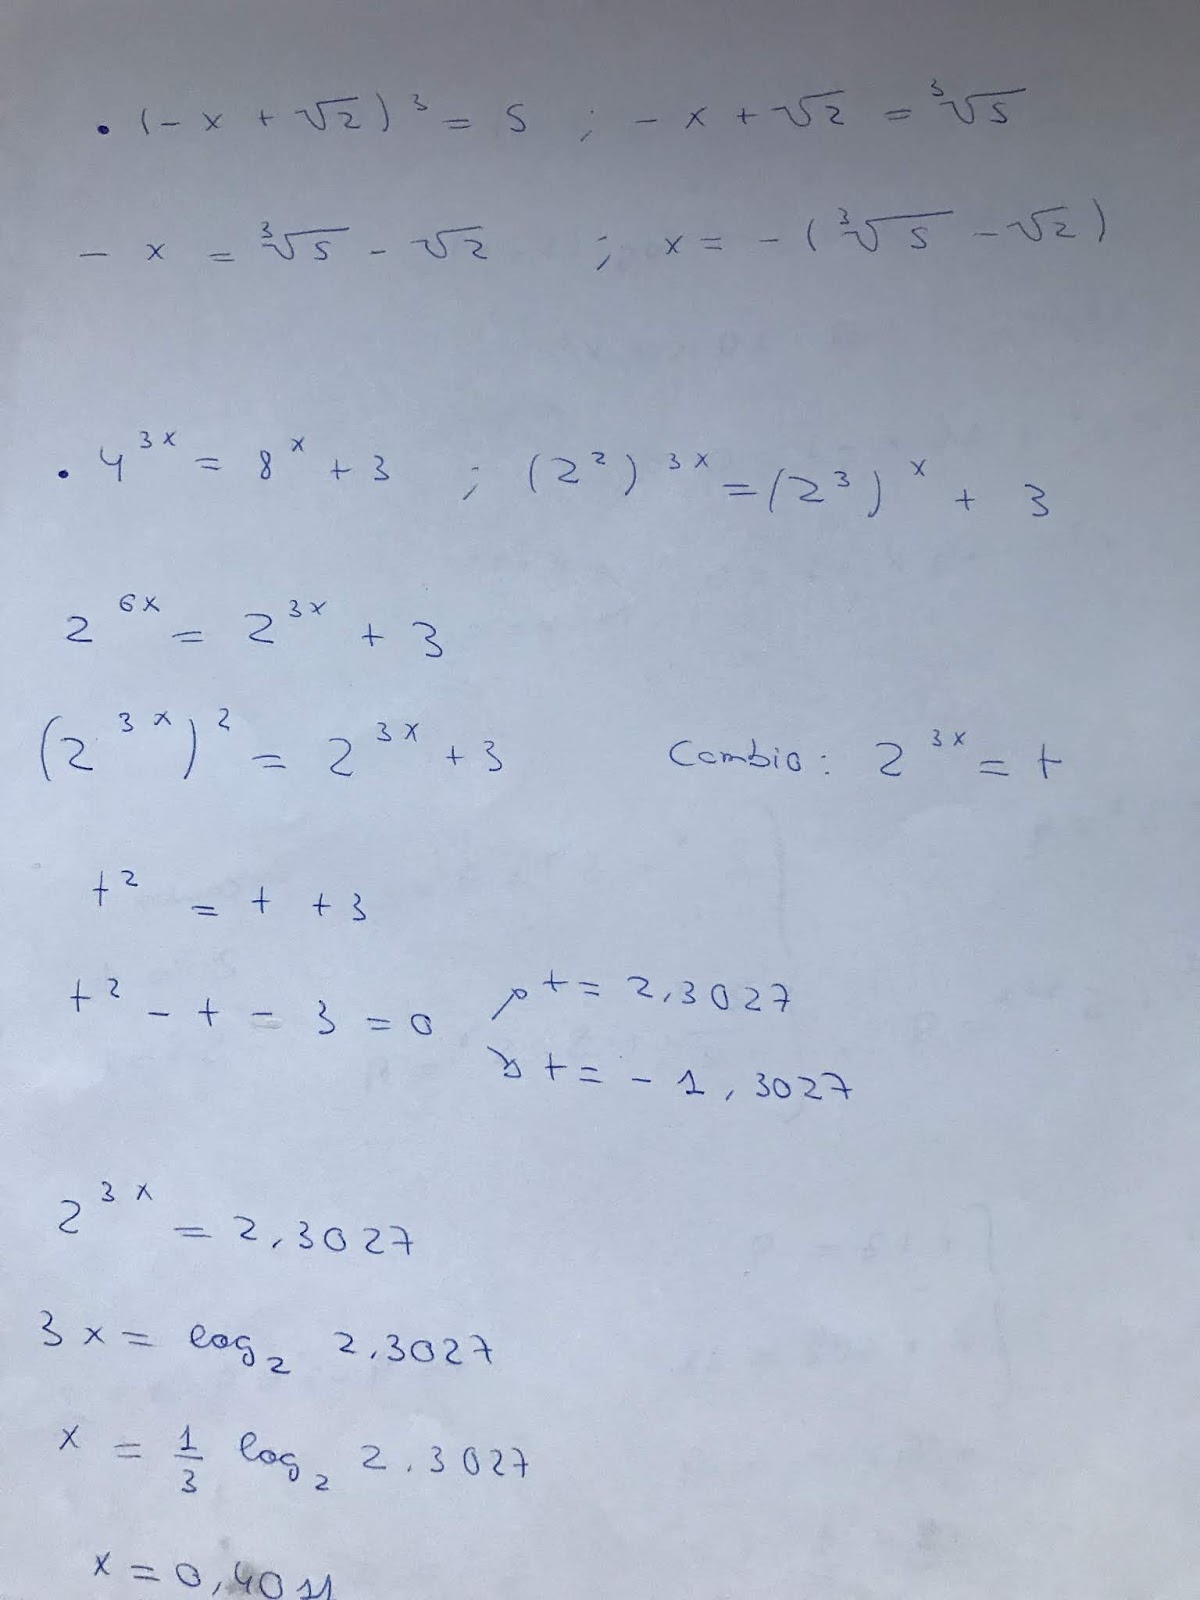 • (-x + √2)³ = 5 ; -x + √2 = ³√5
- x = ³√5 - √2 ; x = - (³√5 - √2)
• 4^{3x} = 8^x + 3 ; (2²)^{3x} = (2³)^x + 3
2^{6x} = 2^{3x} + 3
(2^{3x})² = 2^{3x} + 3 Cambio: 2^{3x} = t
t² = t + 3
t² - t - 3 = 0 ↗ t = 2,3027
↘ t = - 1,3027
2^{3x} = 2,3027
3x = log₂ 2,3027
x = 1/3 log₂ 2,3027
x = 0,4011